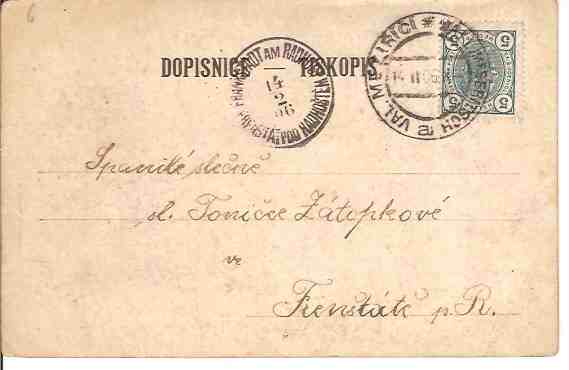 6
DOPISNICE — TISKOPIS
FRANKSTADT AM RADHOST
14
2
06
FRENŠTÁT POD RADHOŠTĚM
VAL. MEZIŘÍČÍ
14 II 06
5 5
5 5
Spanilé slečně
sl. Toničce Zátopkové
ve
Frenštátě p. R.